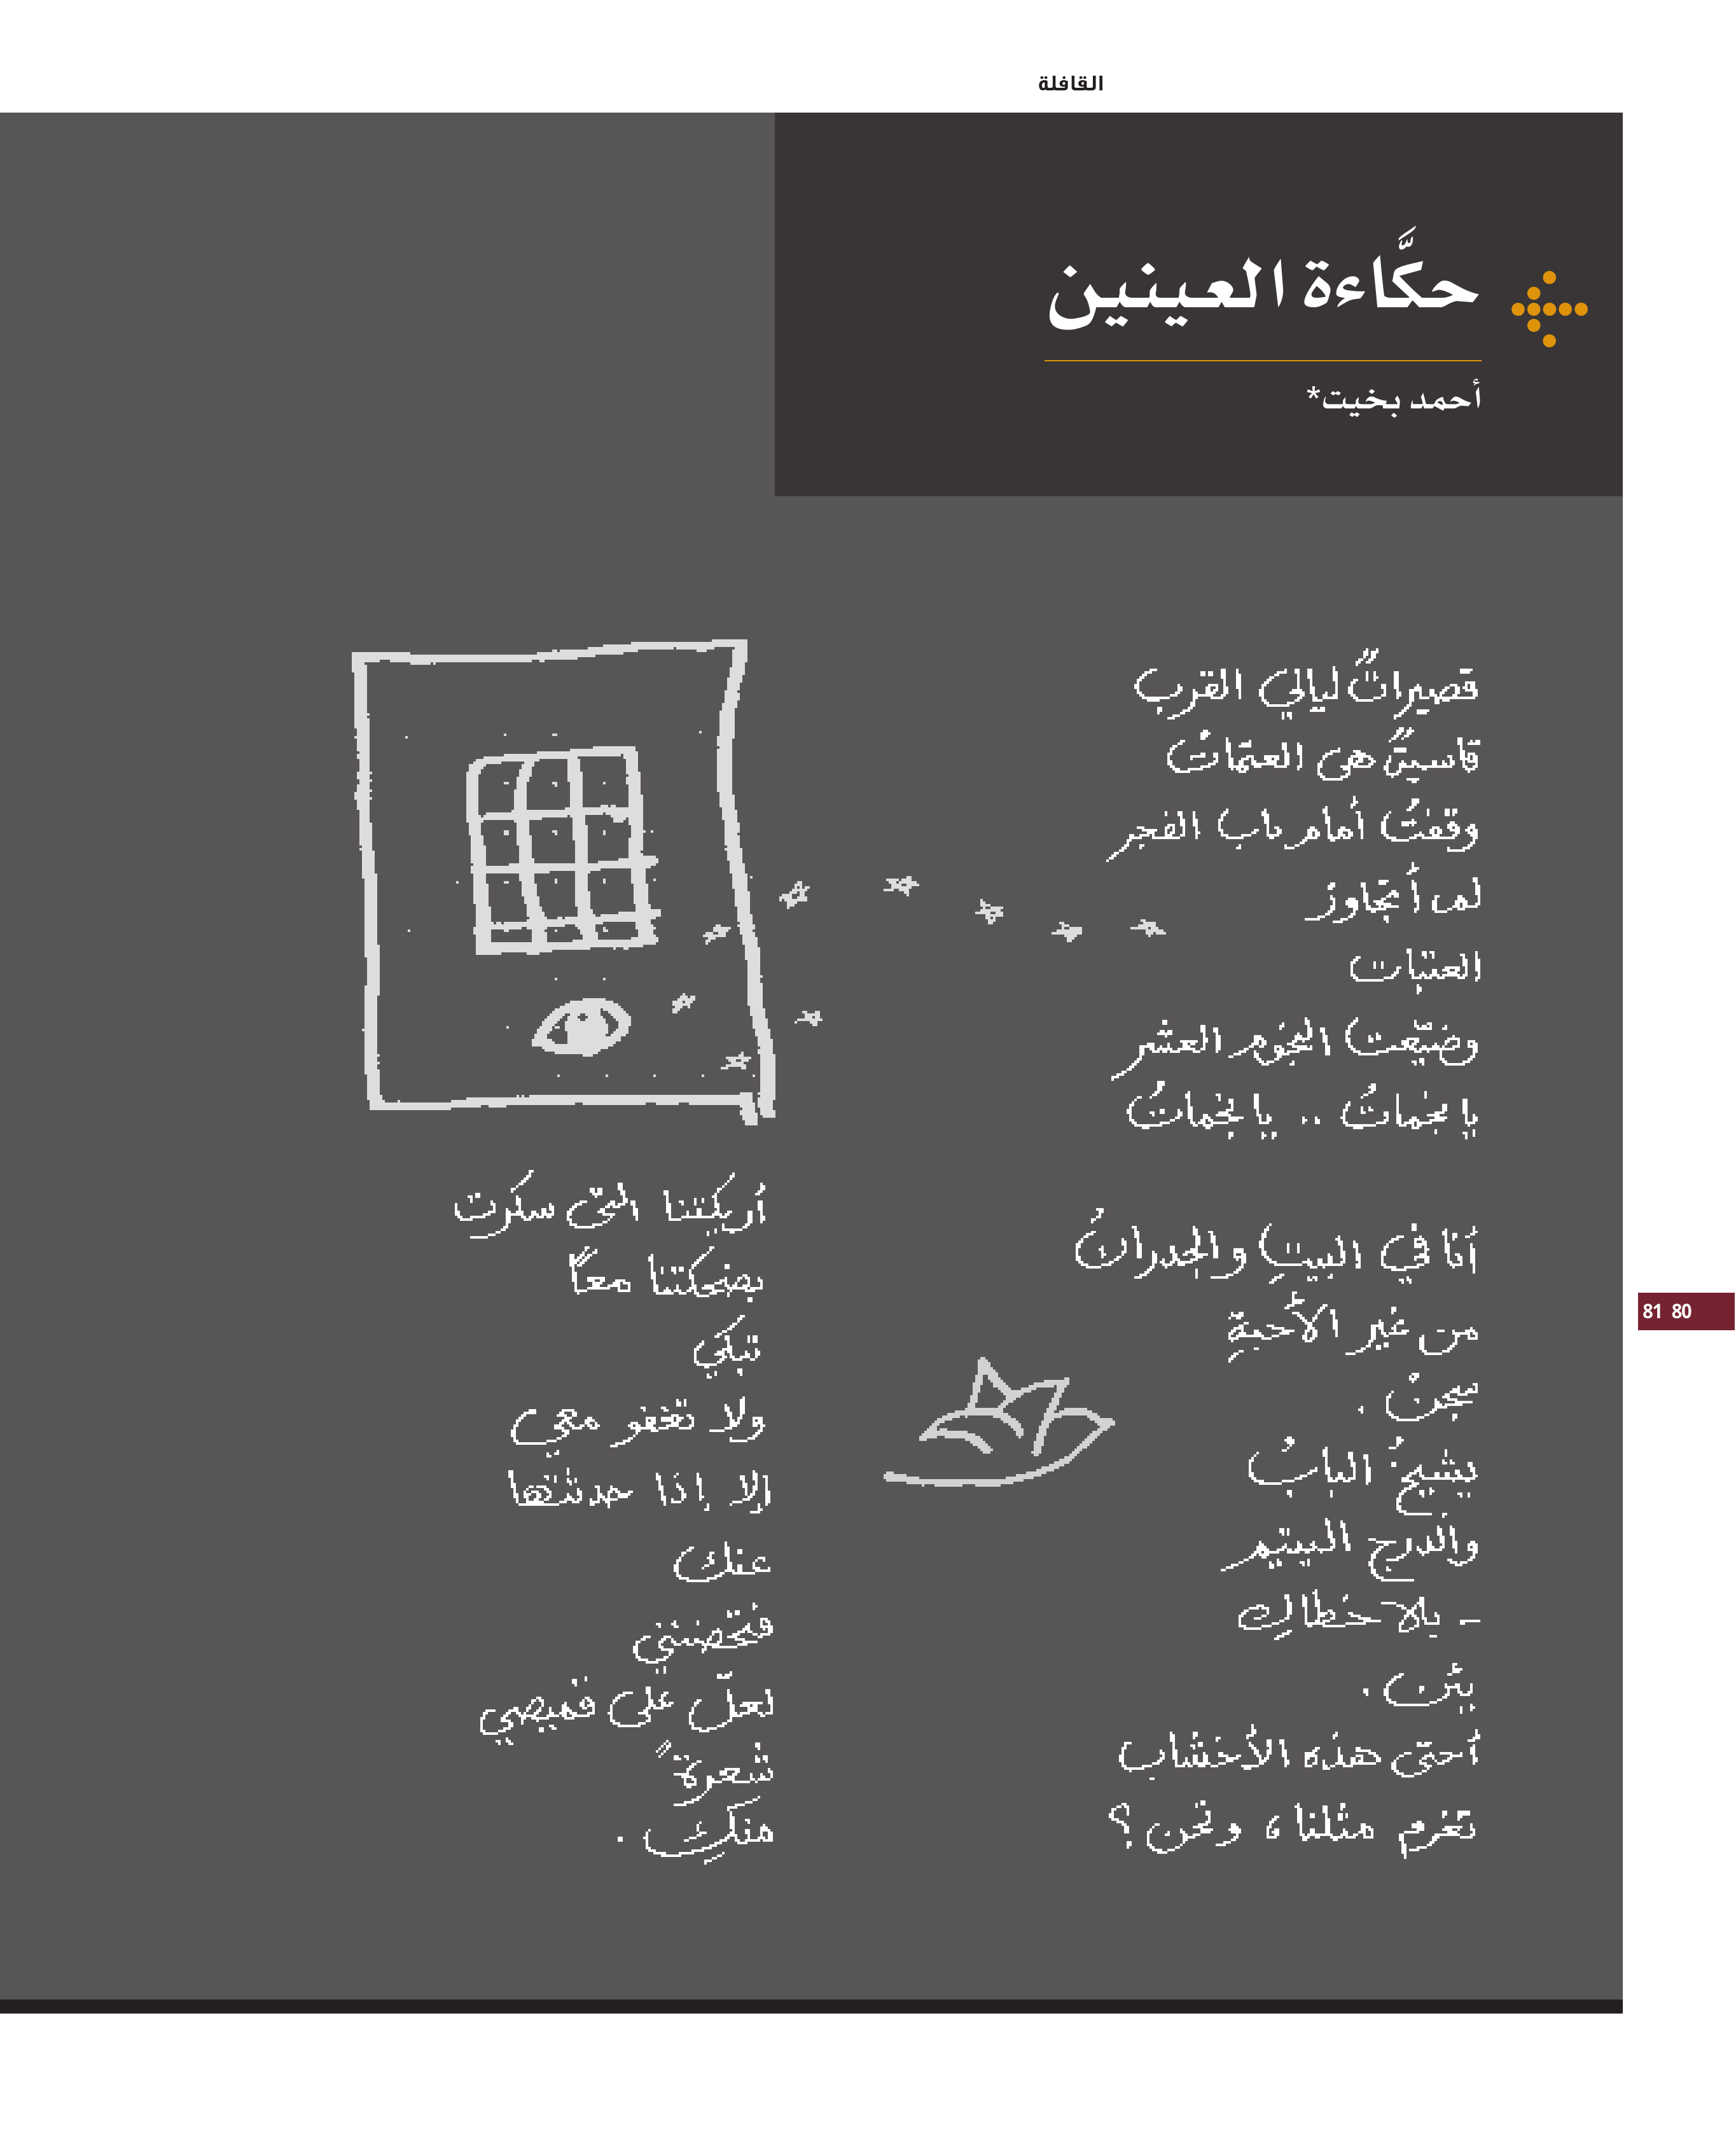 القافلة
حكَّاءة العينين
أحمد بخيت*
قصيراتٌ ليالي القرب
قاسيةٌ هي العتماتُ
وقفتُ أمام باب الفجر
لم أتجاوز
العتبات
وضيّعت النجوم العشر
يا نجماتُ .. يا نجماتُ
أنا في البيتِ والجدرانُ
من غير الأحبةِ
سجنٌ .
يشيخُ البابُ
والدرج اليتيم
- بلا خطاكِ
يئن .
أحتى هذه الأخشاب
تغرم مثلنا، ونحن ؟
أريكتنا التي سكرت
بضحكتنا معاً
تبكي
ولا تغفو معي
إلا إذا حدثتها
عنك
فتحضنني
لعلّ على قميصي
شعرةً
منكِ .
81 80